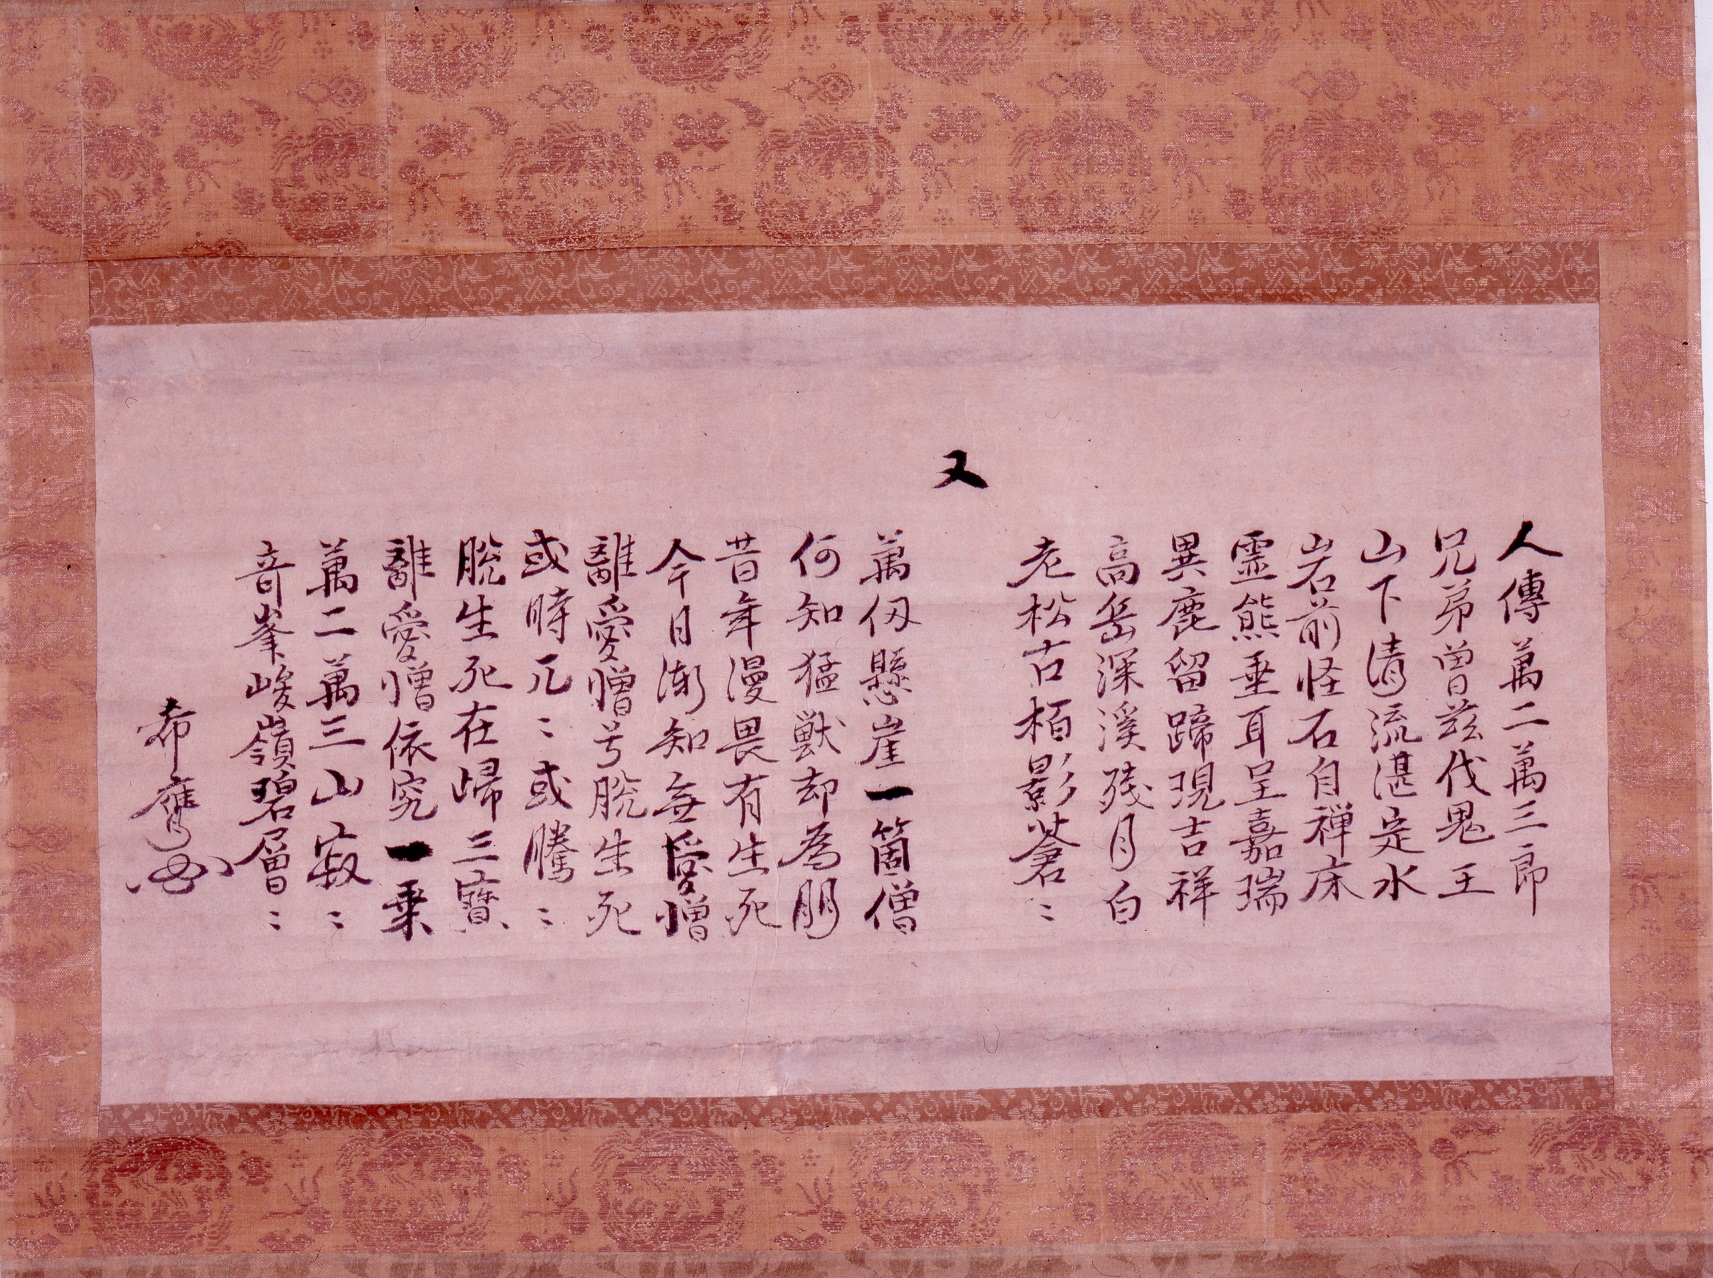 人傳萬二萬三郎
兄弟曽茲伐鬼王
山下清流湛定水
岩前怪石自禅床
霊熊垂耳呈嘉瑞
異鹿留蹄現吉祥
高岳深溪残月白
老松古栢影蒼〻
又
萬仭懸崖一箇僧
何知猛獣却為朋
昔年漫畏有生死
今日漸知無愛憎
離愛憎兮脱生死
或時兀〻或騰〻
脱生死在帰三寶
離愛憎依究一乗
萬二萬三山寂〻
奇峯峻嶺碧層〻
希膺